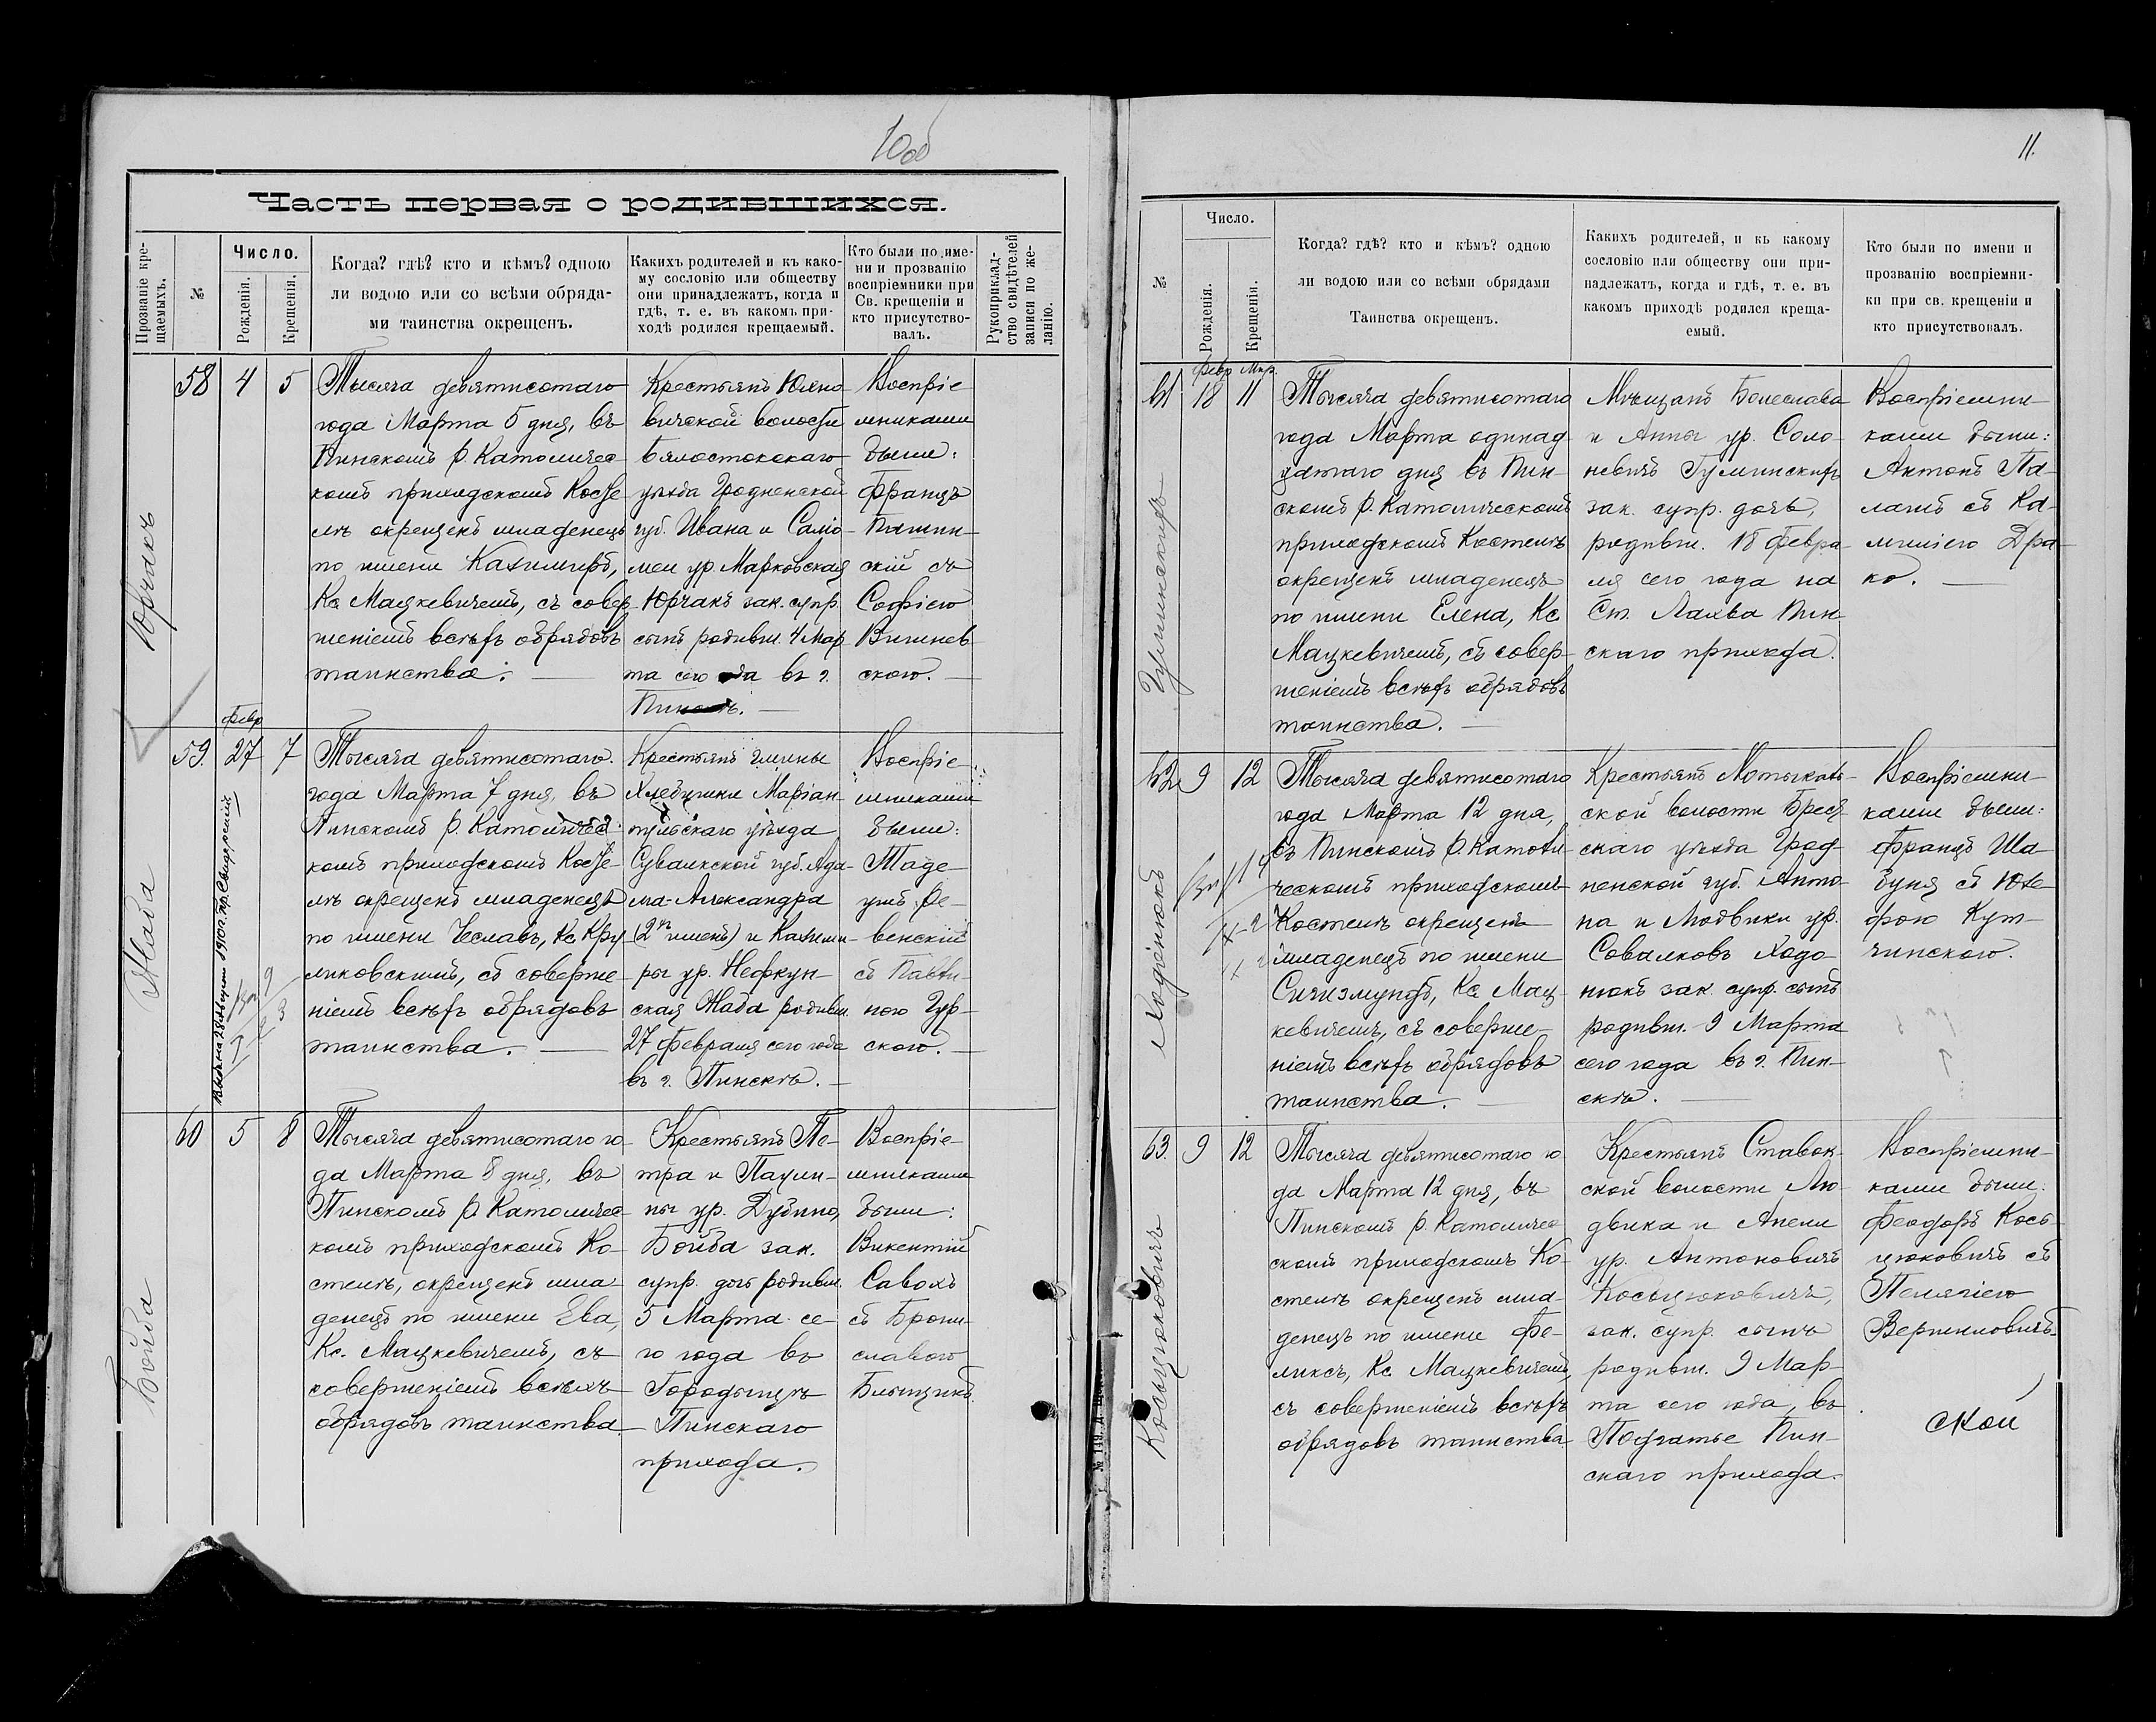 10об
Часть первая о родившихся.
Прозваніе кре-
щаемыхъ.
№
Число.
Рожденія.
Крещенія.
Когда? гдѣ? кто и кѣмъ? одною
ли водою или со всѣми обряда-
ми таинства окрещенъ.
Какихъ родителей и къ како-
му сословію или обществу
они принадлежатъ, когда и
гдѣ, т. е. въ какомъ при-
ходѣ родился крещаемый.
Кто были по име-
ни и прозванію
воспріемники при
Св. крещеніи и
кто присутство-
валъ.
Рукоприклад-
ство свидѣтелей
записи по же-
ланію.
Юрчакъ
58 4 5
Тысяча девятисотаго
года Марта 5 дня, въ
Пинскомъ Р. Католичес
комъ приходскомъ Косте
лѣ окрещенъ младенецъ
по имени Казимиръ,
Кс. Мацкевичемъ, съ совер
шеніемъ всѣхъ обрядовъ
таинства.
Крестьянъ Юхно
вичской волости
Бѣлостокскаго
уѣзда Гродненской
губ. Ивана и Сало
меи ур. Марковская
Юрчакъ зак. супр.
сынъ родивш. 4 Мар
та сего года въ г.
Пинскѣ.
Воспріе
мниками
были:
Францъ
скій съ
Софіею
Вишнев
скою.
Жаба
59. Февр 27 7
Выдана 28 Августа 1910 г.
Тысяча девятисотаго
года Марта 7 дня, въ
Пинскомъ Р. Католичес
комъ приходскомъ Косте
лѣ окрещенъ младенецъ
по имени Чеславъ, Кс. Кру
ликовскимъ, съ соверше
ніемъ всѣхъ обрядовъ
таинства.
Крестьянъ гмины
Хлебишки Маріам
польскаго уѣзда
Сувалкской губ. Ада
ма-Александра
(2хъ именъ) и Казими
ры ур. Нефкун
ская Жаба родивш.
27 Февраля сего года
въ г. Пинскѣ.
Воспріе
мниками
были:
Таде
ушъ Ре
венскій
съ Павли
ною Гур
скою.
Бойба
60 5 8
Тысяча девятисотаго го
да Марта 8 дня, въ
Пинскомъ Р. Католичес
комъ приходскомъ Ко
стелѣ, окрещенъ мла
денецъ по имени Ева,
Кс. Мацкевичемъ, съ
совершеніемъ всѣхъ
обрядовъ таинства
Крестьянъ Пе-
тра и Паули-
ны ур. Дубино,
Бойба зак.
супр. дочь родивш.
5 Марта се-
го года въ
Городыщѣ
Пинскаго
прихода.
Воспріе-
мниками
были:
Викентій
Савохъ
съ Брони
славою
11.
№
Число.
Рожденія.
Крещенія.
Когда? гдѣ? кто и кѣмъ? одною
ли водою или со всѣми обрядами
Таинства окрещенъ.
Какихъ родителей, и къ какому
сословію или обществу они при-
надлежатъ, когда и гдѣ, т. е. въ
какомъ приходѣ родился креща-
емый.
Кто были по имени и
прозванію воспріемни-
ки при св. крещеніи и
кто присутствовалъ.
Гулинскихъ
61 Февр 18 Мар. 11
Тысяча девятисотаго
года Марта одинад
цатаго дня въ Пин-
скомъ Р. Католическомъ
приходскомъ Костелѣ
окрещенъ младенецъ
по имени Елена, Кс.
Мацкевичемъ, съ совер-
шеніемъ всѣхъ обрядовъ
таинства.
Мѣщанъ Болеслава
и Анны ур. Соло-
невичъ Гулинскихъ
зак. супр. дочь,
родивш. 18 Февра
ля сего года на
Ст. Лахва Пин
скаго прихода.
Воспріемни-
ками были:
Антонъ Па-
лашъ съ Ка-
миліею Дра-
ко.
Ходенюкъ
62 9 12
Тысяча девятисотаго
года Марта 12 дня,
въ Пинскомъ Р. Католи
ческомъ приходскомъ
Костелѣ окрещенъ
младенецъ по имени
Сигизмундъ, Кс. Мац
кевичемъ, съ соверше-
ніемъ всѣхъ обрядовъ
таинства.
Крестьянъ Мотыкаль
ской волости Брест
скаго уѣзда Грод-
ненской губ. Анто-
на и Людвики ур.
Совалковъ Ходо-
нюкъ зак. супр. сынъ
родивш. 9 Марта
сего года въ г. Пин-
скѣ.
Воспріемни-
ками были:
Францъ Ша
буня съ Юзе
фою Кут-
чинскою.
Косьцюковичъ
63. 9 12
Тысяча девятисотаго го
да Марта 12 дня, въ
Пинскомъ Р. Католичес
комъ приходскомъ Ко-
стелѣ окрещенъ мла-
денецъ по имени Фе-
ликсъ, Кс. Мацкевичемъ
съ совершеніемъ всѣхъ
обрядовъ таинства
Крестьянъ Ставок-
ской волости Лю-
двика и Анели
ур. Антоновичъ
Косьцюковичъ,
зак. супр. сынъ
родивш. 9 Мар-
та сего года, въ
Похатье Пин-
скаго прихода.
Воспріемни-
ками были:
Феодоръ Кось-
цюковичъ съ
Пелягіею
Веринковичъ
ской